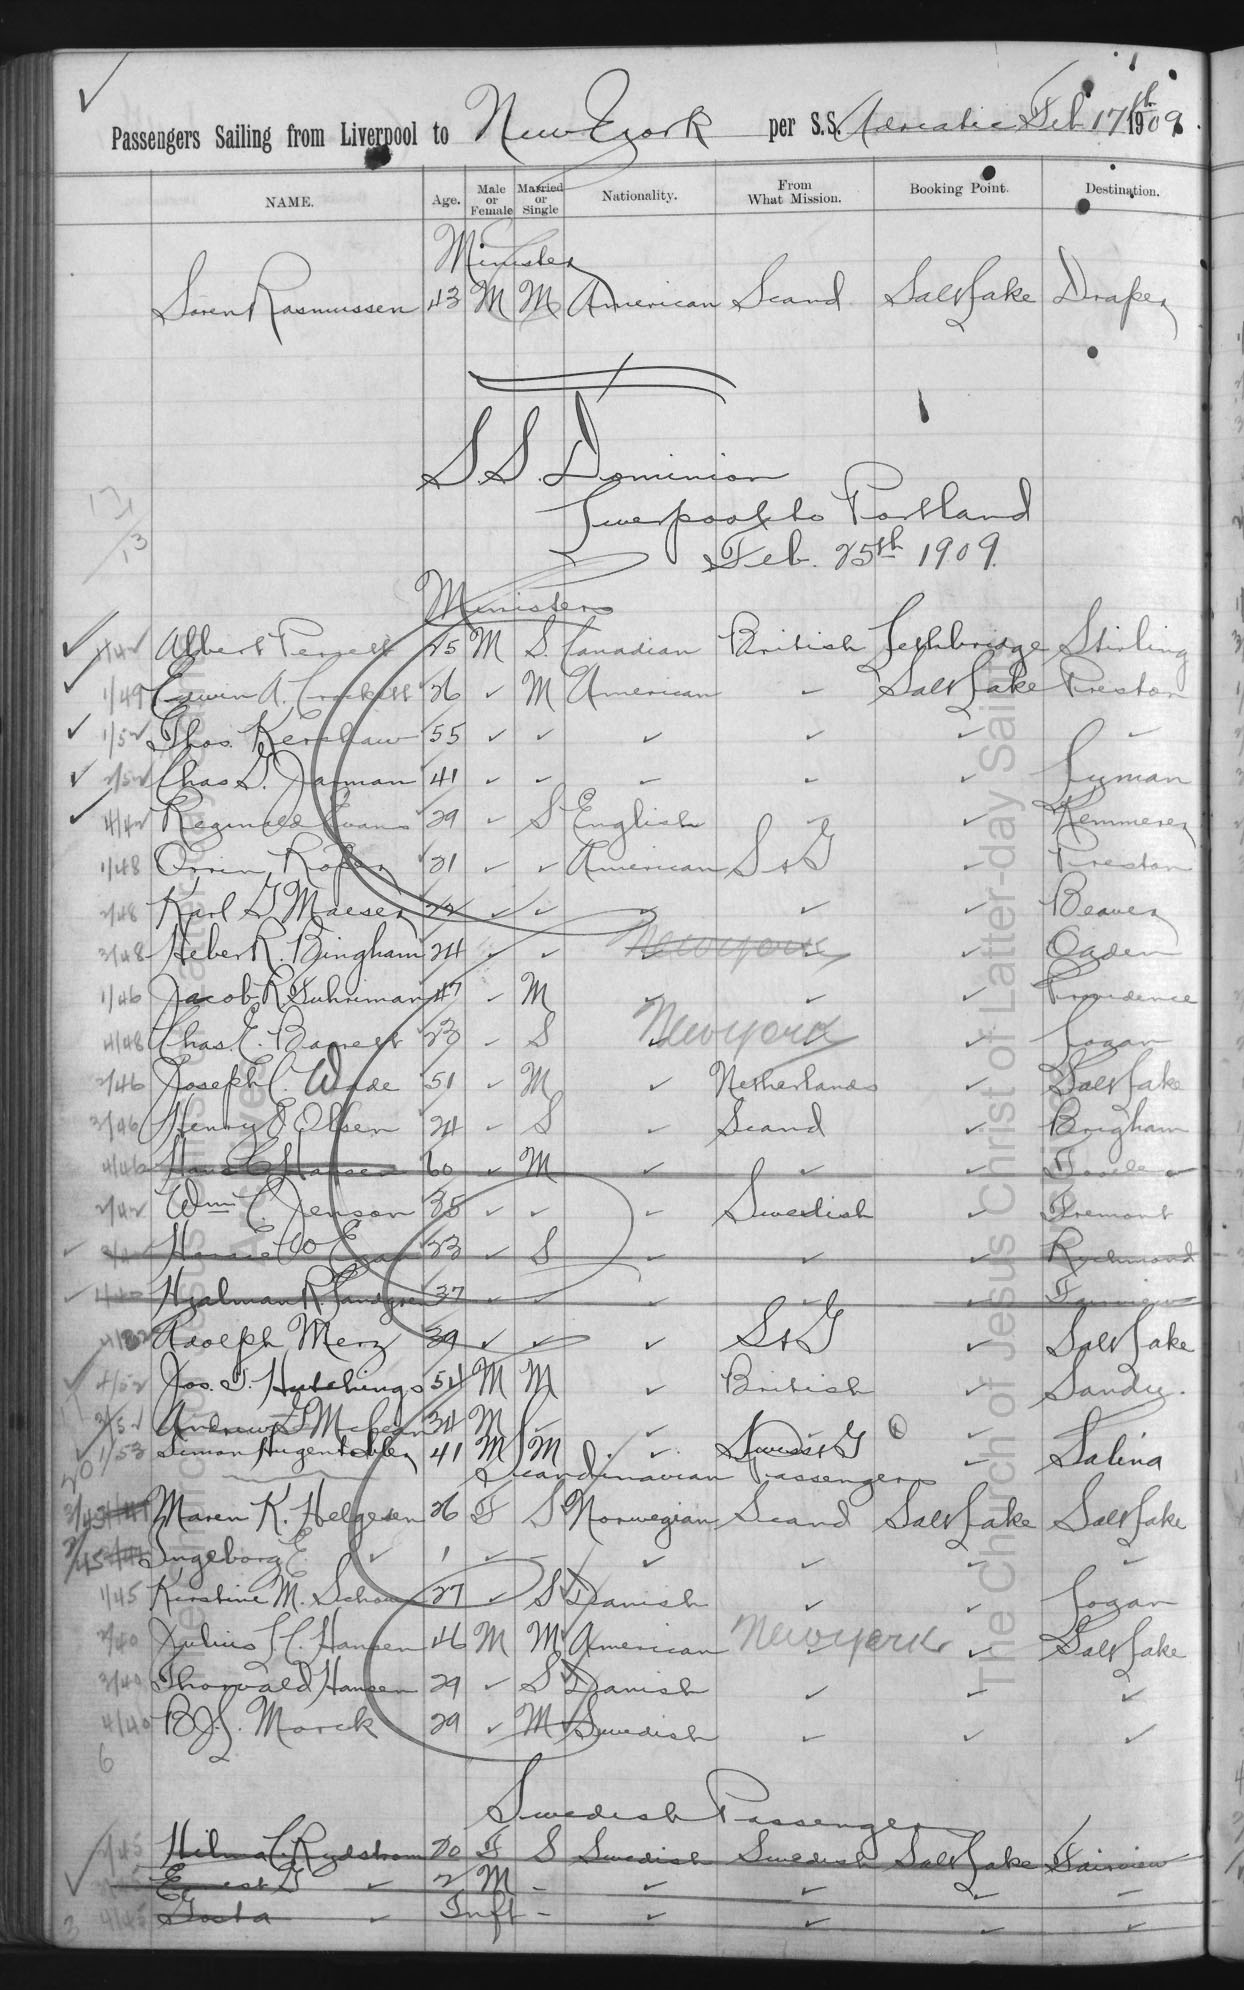 Passengers Sailing from Liverpool to New York per S.S. Adriatic Feb 17th 1909.
NAME. Age. Male or Female Married or Single Nationality. From What Mission. Booking Point. Destination.
Minister
Soren Rasmussen 43 M M American Scand Salt Lake Draper
S.S. Dominion
Liverpool to Portland
Feb. 25th 1909.
Ministers
1/42 Albert 25 M S. Canadian British Lethbridge Stirling
1/49 Edwin A. Crockett 26 ✓ M American ✓ Salt Lake Preston
1/52 Thos. Kershaw 55 ✓ ✓ ✓ ✓ ✓ ✓
2/52 Chas G. Jarman 41 ✓ ✓ ✓ ✓ ✓ Lyman
4/42 Reginald Evans 29 ✓ S English ✓ ✓ Kemmerer
1/48 Orrin Roper 21 ✓ ✓ American S & G ✓ Preston
2/48 Karl G Maeser 22 ✓ ✓ ✓ ✓ ✓ Beaver
3/48 Heber R. Bingham 24 ✓ ✓ New York ✓ ✓ Ogden
1/46 Jacob R. 47 ✓ M ✓ ✓ ✓ Providence
4/48 Chas. E. 23 ✓ S New York ✓ Logan
2/46 Joseph C. Wade 51 ✓ M ✓ Netherlands ✓ Salt Lake
3/46 Henry Olsen 24 ✓ S ✓ Scand ✓ Brigham
4/46 Hans C Hansen 60 ✓ M ✓ ✓ ✓ Tooele
2/42 Wm C. Jenson 35 ✓ ✓ ✓ Swedish ✓ Fremont
W 23 ✓ S ✓ ✓ ✓ Richmond
Hjalman R. 37 ✓ ✓ ✓ ✓ ✓ Fairview
Adolph Merz 39 ✓ ✓ ✓ S & G ✓ Salt Lake
4/52 Jos. T. Hutchings 54 M M ✓ British ✓ Sandy.
3/52 Andrew G McLean 34 M ✓ ✓
1/53 Simon Hugentobler 41 M M ✓ Swiss & G ✓ Salina
Scandinavian Passengers
Maren K. Helgesen 26 F S Norwegian Scand Salt Lake Salt Lake
Ingeborg E. ✓ 1 ✓ ✓ ✓ ✓ ✓
1/45 Kirstine M. Schou 27 ✓ S Danish ✓ ✓ Logan
2/40 Julius L. C. Hansen 46 M M American New York ✓ Salt Lake
3/40 Thorvald Hansen 29 ✓ S Danish ✓ ✓ ✓
4/40 B. J. L. Morck 29 ✓ M Swedish ✓ ✓ ✓
6
Swedish Passengers
Hilma C. Rydstrom 20 F S Swedish Swedish Salt Lake Fairview
Ernest G ✓ 2 M - ✓ ✓ ✓ -
3 4/45 Gosta ✓ Inft - ✓ ✓ ✓ ✓
The Church of Jesus Christ of Latter-day Saints